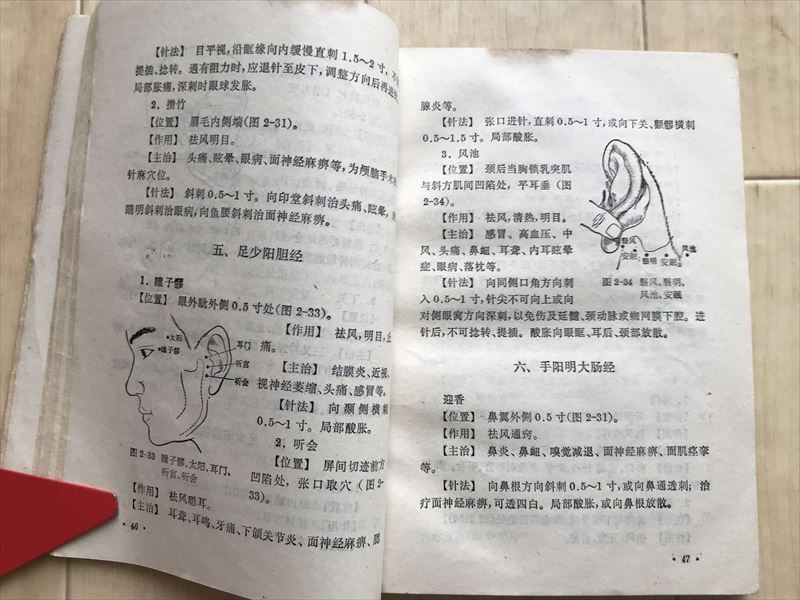 【针法】 目平视，沿眶缘向内缓慢直刺 1.5～2 寸，不
提插、捻转。遇有阻力时，应退针至皮下，调整方向后再进
局部胀痛，深刺时眼球发胀。
2．攒竹
【位置】 眉毛内侧端（图 2-31）。
【作用】 祛风明目。
【主治】 头痛、眩晕、眼病、面神经麻痹等，为颅脑手术
针麻穴位。
【针法】 斜刺 0.5～1 寸。向印堂斜刺治头痛、眩晕，
睛明斜刺治眼病，向鱼腰斜刺治面神经麻痹。
五、足少阳胆经
1．瞳子髎
【位置】 眼外眦外侧 0.5 寸处（图 2-33）。
【作用】 祛风，明目，止
痛。
【主治】 结膜炎、近视、
视神经萎缩、头痛、感冒等。
【针法】 向颞侧横刺
0.5～1 寸。局部酸胀。
2．听会
【位置】 屏间切迹前方
凹陷处，张口取穴（图 2-
33）。
太阳
瞳子髎
耳门
听宫
听会
图 2-33 瞳子髎、太阳、耳门、
听宫、听会
【作用】 祛风聪耳。
【主治】 耳聋、耳鸣、牙痛、下颌关节炎、面神经麻痹、腮
· 46 ·
腺炎等。
【针法】 张口进针，直刺 0.5～1 寸，或向下关、颧髎横刺
0.5～1.5 寸。局部酸胀。
3．风池
【位置】 颈后当胸锁乳突肌
与斜方肌间凹陷处，平耳垂（图
2-34）。
【作用】 祛风，清热，明目。
【主治】 感冒、高血压、中
风、头痛、鼻衄、耳聋、内耳眩晕
症、眼病、落枕等。
【针法】 向同侧口角方向刺
入 0.5～1 寸，针尖不可向上或向
对侧眼窝方向深刺，以免伤及延髓、颈动脉或蜘网膜下腔。进
针后，不可捻转、提插。酸胀向眼眶、耳后、颈部放散。
翳风
安眠₁
翳明
安眠₂
风池
图 2-34 翳风、翳明、
风池、安眠
六、手阳明大肠经
迎香
【位置】 鼻翼外侧 0.5 寸（图 2-31）。
【作用】 祛风通窍。
【主治】 鼻炎、鼻衄、嗅觉减退、面神经麻痹、面肌痉挛
等。
【针法】 向鼻根方向斜刺 0.5～1 寸，或向鼻通透刺；治
疗面神经麻痹，可透四白。局部酸胀，或向鼻根放散。
· 47 ·